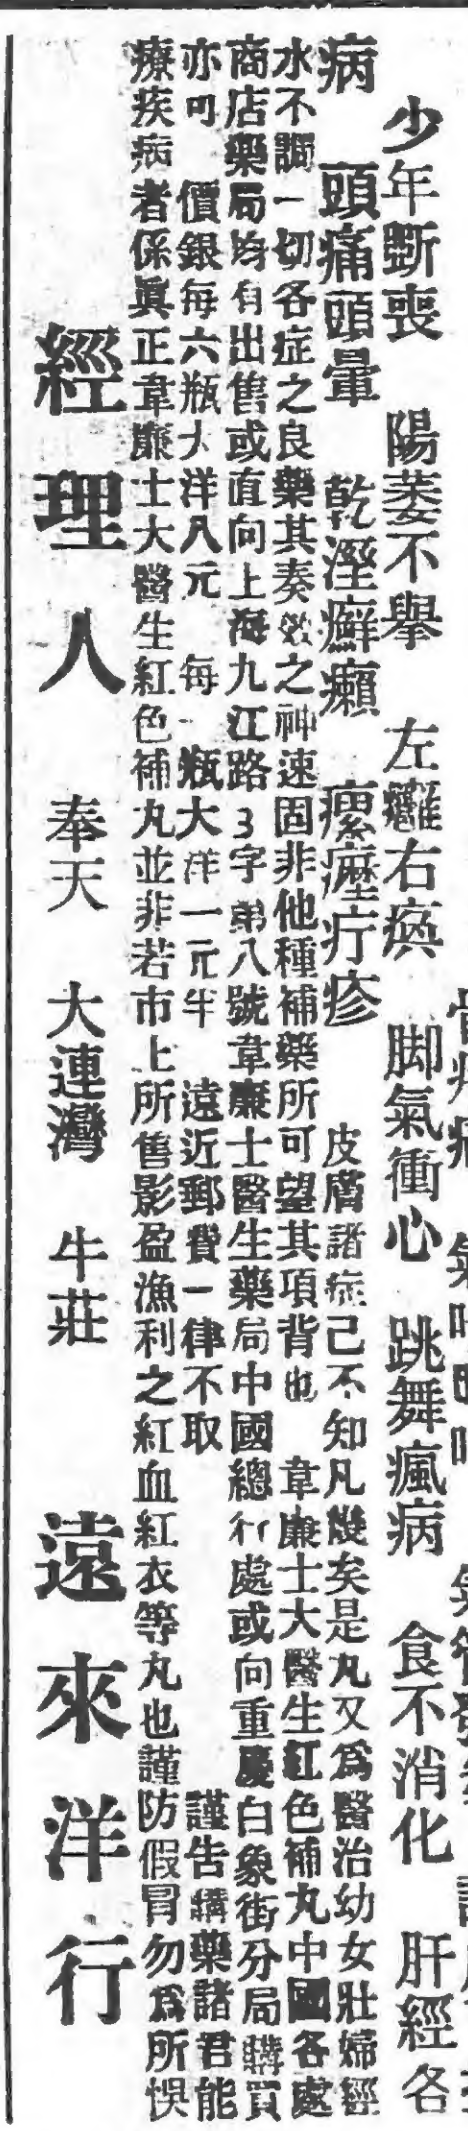 少年斲喪 陽萎不舉 左癱右瘓 脚氣衝心 跳舞瘋病 食不消化 肝經各
病 頭痛頭暈 乾溼癬癩 瘰癧疔疹 皮膚諸症已不知凡幾矣是丸又爲醫治幼女壯婦經
水不調一切各症之良藥其奏效之神速固非他種補藥所可望其項背也 韋廉士大醫生紅色補丸中國各處
商店藥局均有出售或直向上海九江路3字弟八號韋廉士醫生藥局中國總行處或向重慶白象街分局購買
亦可 價銀每六瓶大洋八元 每一瓶大洋一元半 遠近郵費一律不取 謹告購藥諸君能
療疾病者係眞正韋廉士大醫生紅色補丸並非若市上所售影盈漁利之紅血紅衣等丸也謹防假冒勿爲所悞
經理人 奉天 大連灣 牛莊 遠來洋行